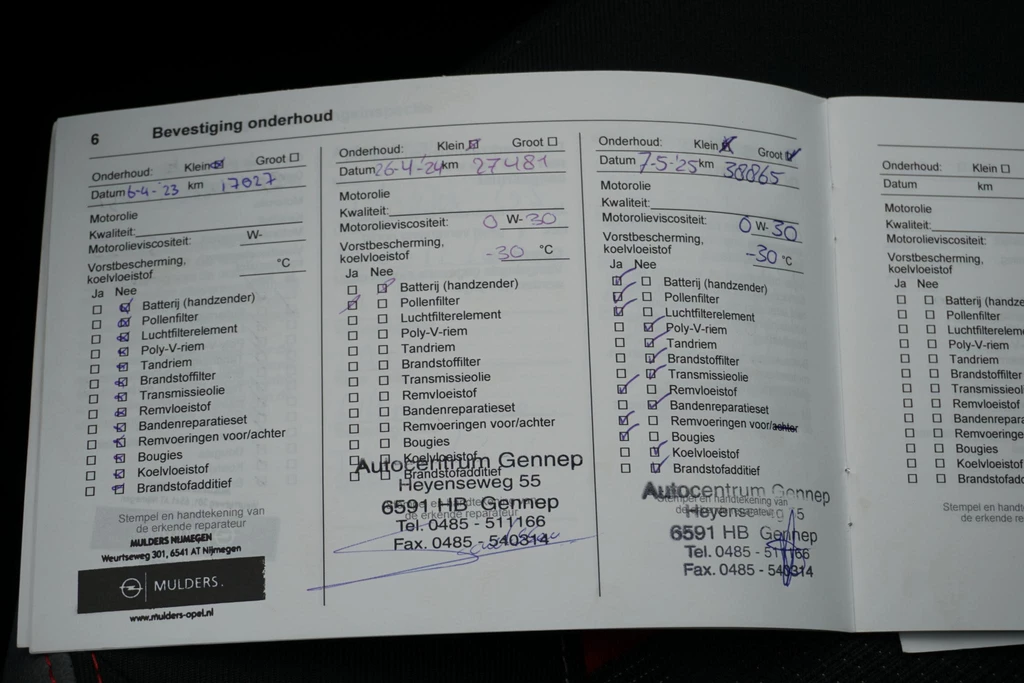 6 Bevestiging onderhoud
Onderhoud: Klein Groot
Datum 6-4-'23 km 17027
Motorolie
Kwaliteit:
Motorolieviscositeit: W-
Vorstbescherming,
koelvloeistof °C
Ja Nee
Batterij (handzender)
Pollenfilter
Luchtfilterelement
Poly-V-riem
Tandriem
Brandstoffilter
Transmissieolie
Remvloeistof
Bandenreparatieset
Remvoeringen voor/achter
Bougies
Koelvloeistof
Brandstofadditief
Stempel en handtekening van
de erkende reparateur
MULDERS NIJMEGEN
Weurtseweg 301, 6541 AT Nijmegen
MULDERS.
www.mulders-opel.nl
Onderhoud: Klein Groot
Datum 26-4-'24 km 27481
Motorolie
Kwaliteit:
Motorolieviscositeit: 0 W-30
Vorstbescherming,
koelvloeistof -30 °C
Ja Nee
Batterij (handzender)
Pollenfilter
Luchtfilterelement
Poly-V-riem
Tandriem
Brandstoffilter
Transmissieolie
Remvloeistof
Bandenreparatieset
Remvoeringen voor/achter
Bougies
Koelvloeistof
Brandstofadditief
Autocentrum Gennep
Heyenseweg 55
Stempel en handtekening van
6591 HB Gennep
de erkende reparateur
Tel. 0485 - 511166
Fax. 0485 - 540314
Onderhoud: Klein Groot
Datum 7-5-'25 km 38865
Motorolie
Kwaliteit:
Motorolieviscositeit: 0 W-30
Vorstbescherming,
koelvloeistof -30 °C
Ja Nee
Batterij (handzender)
Pollenfilter
Luchtfilterelement
Poly-V-riem
Tandriem
Brandstoffilter
Transmissieolie
Remvloeistof
Bandenreparatieset
Remvoeringen voor/achter
Bougies
Koelvloeistof
Brandstofadditief
Autocentrum Gennep
Stempel en handtekening van
Heyenseweg 55
de erkende reparateur
6591 HB Gennep
Tel. 0485 - 511166
Fax. 0485 - 540314
Onderhoud: Klein
Datum km
Motorolie
Kwaliteit:
Motorolieviscositeit:
Vorstbescherming,
koelvloeistof
Ja Nee
Batterij (handze
Pollenfilter
Luchtfiltereleme
Poly-V-riem
Tandriem
Brandstoffilter
Transmissieoli
Remvloeistof
Bandenrepara
Remvoeringen
Bougies
Koelvloeistof
Brandstofadd
Stempel en h
de erke